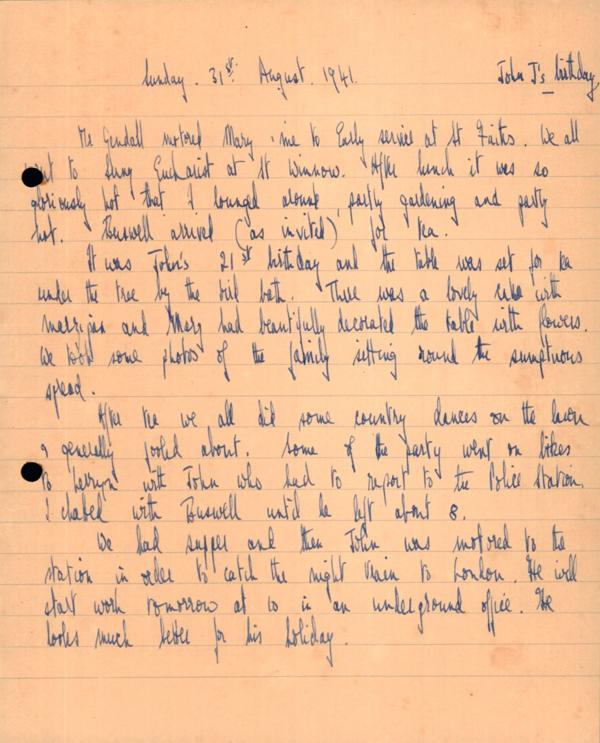 Sunday. 31st August. 1941. John J's birthday
Mr Gendall motored Mary & me to Early service at St Faiths. We all
went to Sung Eucharist at St Winnow. After lunch it was so
gloriously hot that I lounged around, partly gardening and partly
not. Buswell arrived (as invited) for tea.
It was John's 21st birthday and the table was set for tea
under the tree by the bird bath. There was a lovely cake with
marzipan and Mary had beautifully decorated the table with flowers.
We took some photos of the family sitting round the sumptuous
spread.
After tea we all did some country dances on the lawn
& generally fooled about. Some of the party went on bikes
to Lerryn with John who had to report to the Police Station.
I chatted with Buswell until he left about 8.
We had supper and then John was motored to the
station in order to catch the night train to London. He will
start work tomorrow at 10 in an underground office. He
looks much better for his holiday.